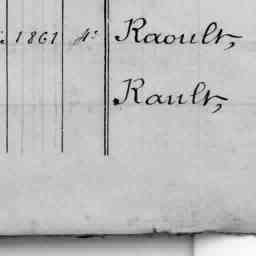 1861 4º Raoult,
Rault,